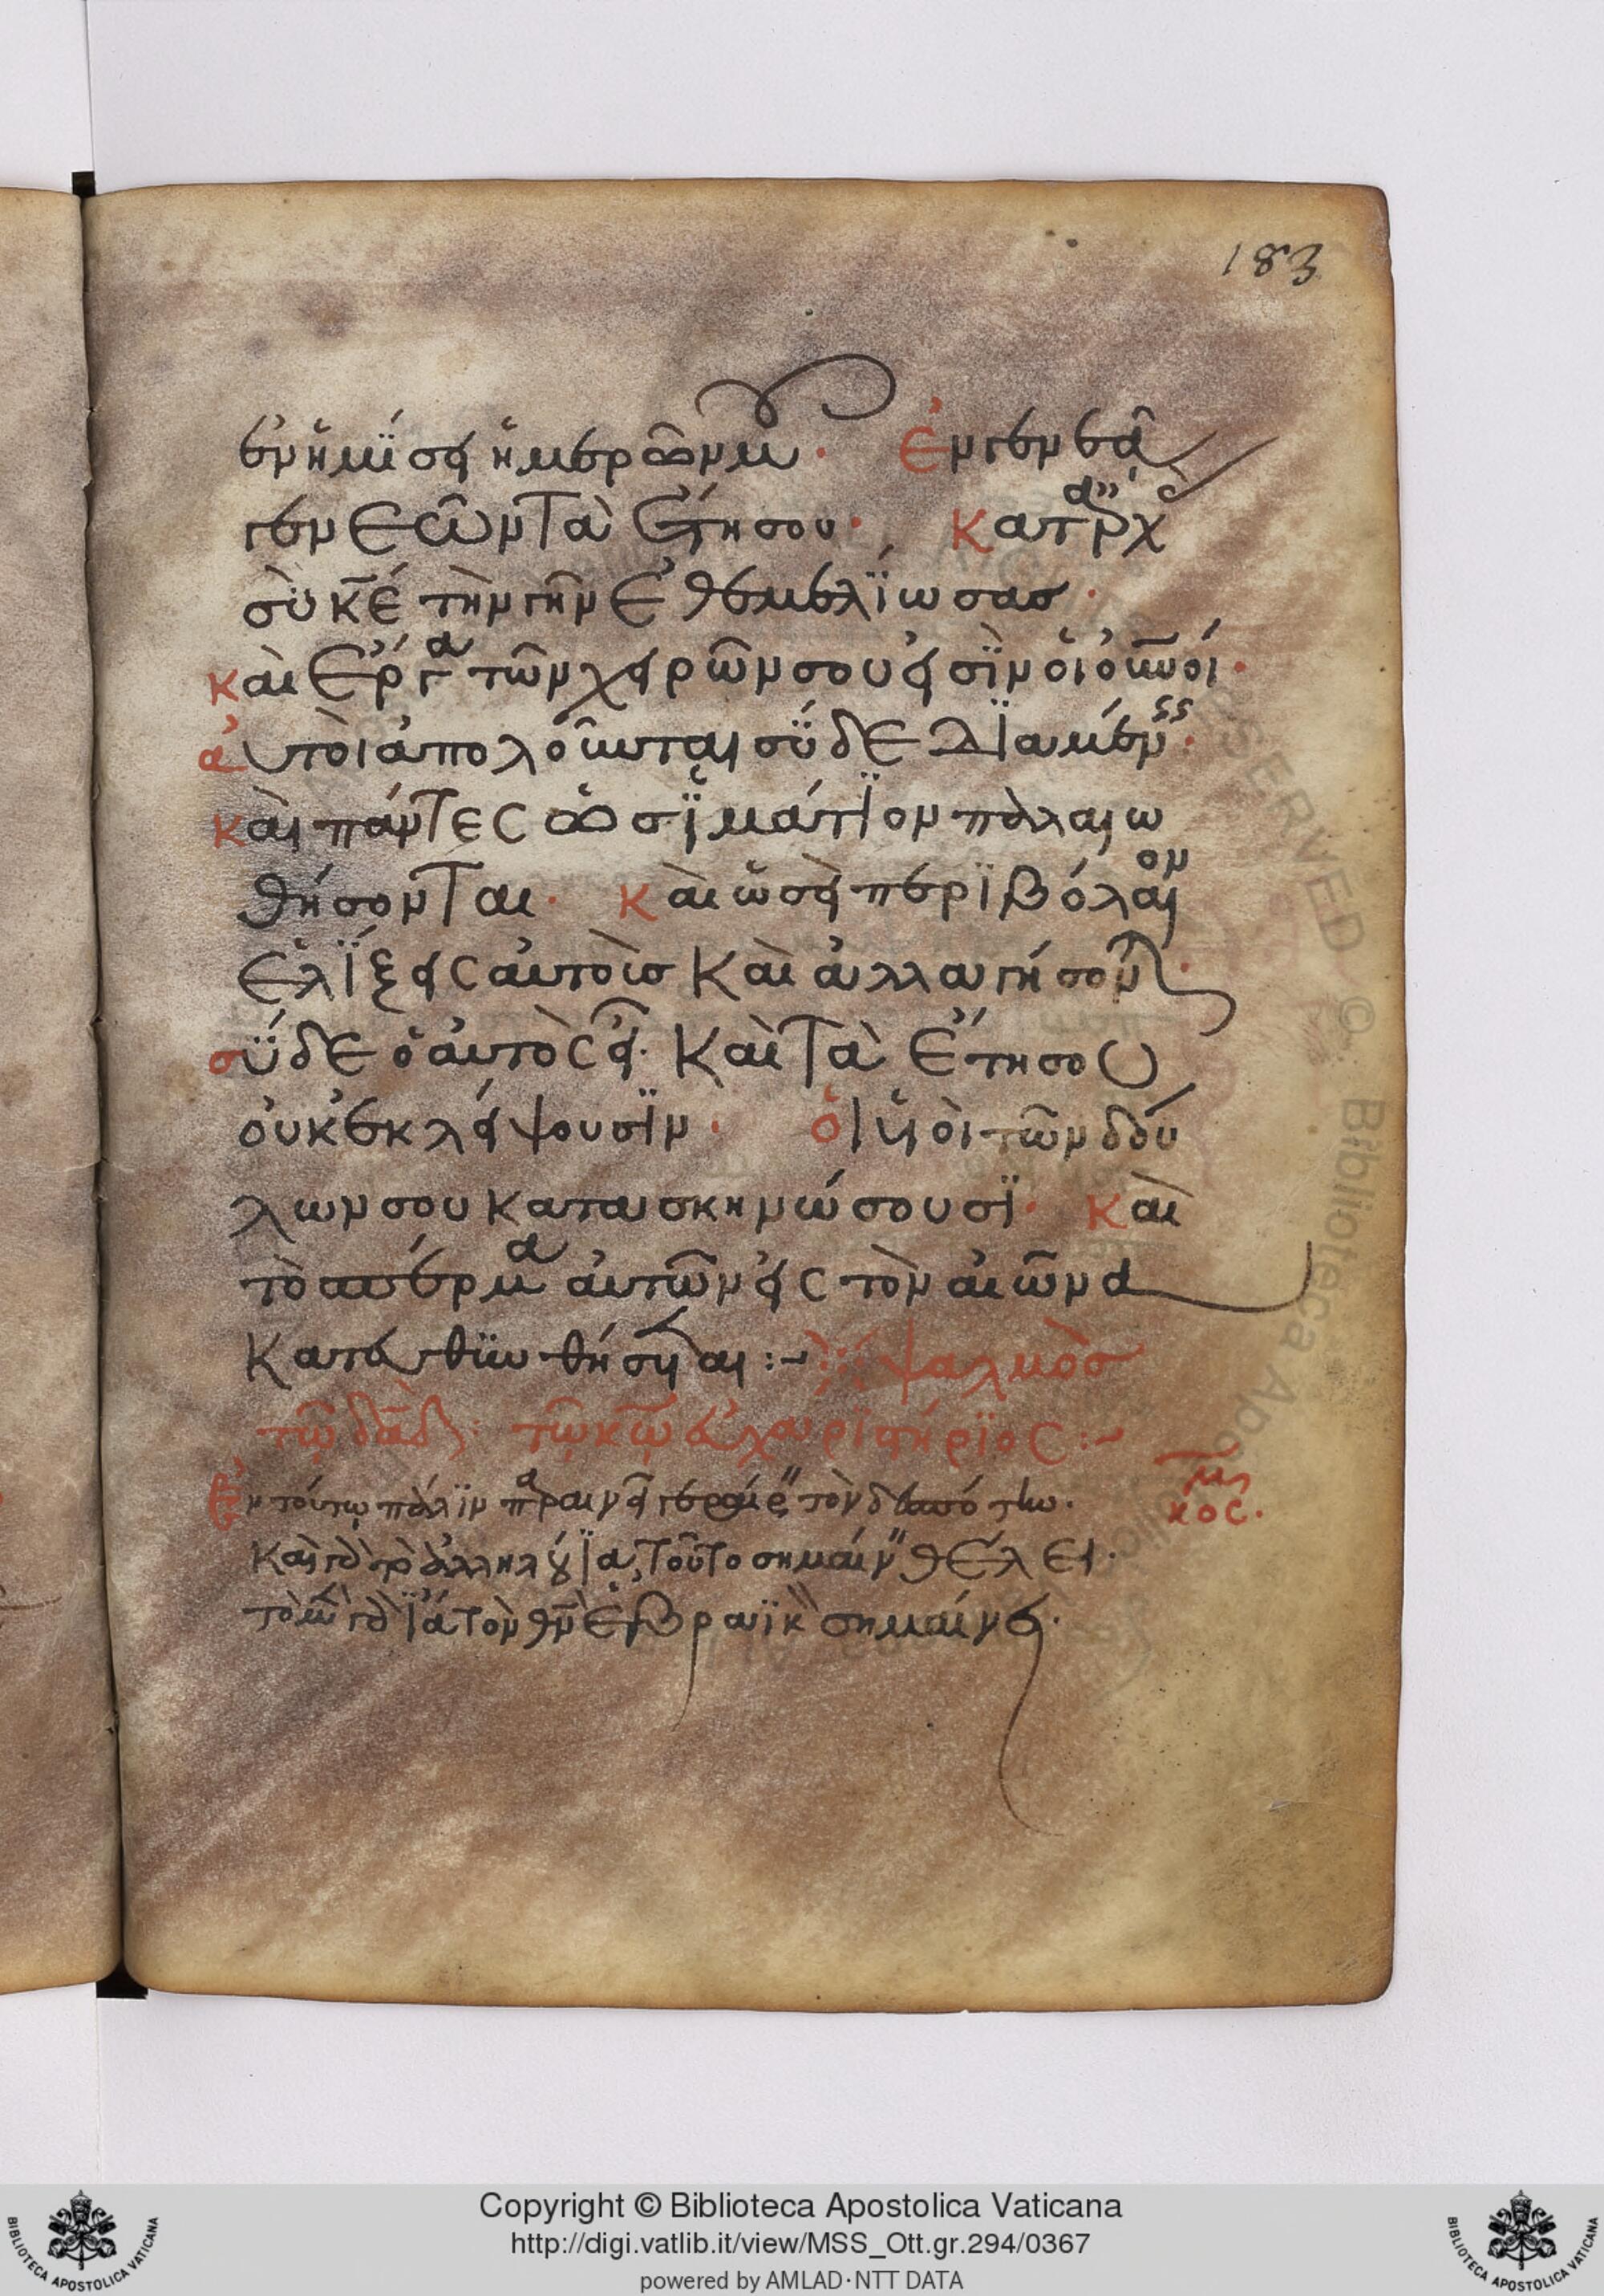 183
ἐν ἡμίσει ἡμερῶν μου· Ἐν γενεᾷ
γενεῶν τὰ ἔτη σου· Κατ ἀρχὰς
σὺ κε τὴν γῆν ἐθεμελίωσας·
καὶ ἔργα τῶν χειρῶν σου εἰσὶν οἱ οὐνοί·
αὐτοὶ ἀπολοῦνται σὺ δὲ διαμένεις·
Καὶ πάντες ὡς ἱμάτιον παλαιω
θήσονται· Καὶ ὡσεὶ περιβόλαιον
ἑλίξεις αὐτοὺς καὶ ἀλλαγήσονται·
σὺ δὲ ὁ αὐτὸς εἶ· Καὶ τὰ ἔτη σου
οὐκ ἐκλείψουσιν· οἱ υἱοὶ τῶν δού
λων σου κατασκηνώσουσι· καὶ
τὸ σπέρμα αὐτῶν εἰς τὸν αἰῶνα
κατευθυνθήσεται :~ ψαλμὸς
τῷ δαδ· τῷ κῷ εὐχαριστήριος :~
Ἐν τούτῳ πάλιν παραινεῖ
καὶ τὸ ἀλληλούϊα, τοῦτο σημαίνειν θέλει·
τὸ ἰὰ τὸν θν ἑβραϊκὰ σημαίνει·
Copyright © Biblioteca Apostolica Vaticana
http://digi.vatlib.it/view/MSS_Ott.gr.294/0367
powered by AMLAD·NTT DATA
BIBLIOTECA APOSTOLICA VATICANA
BIBLIOTECA APOSTOLICA VATICANA